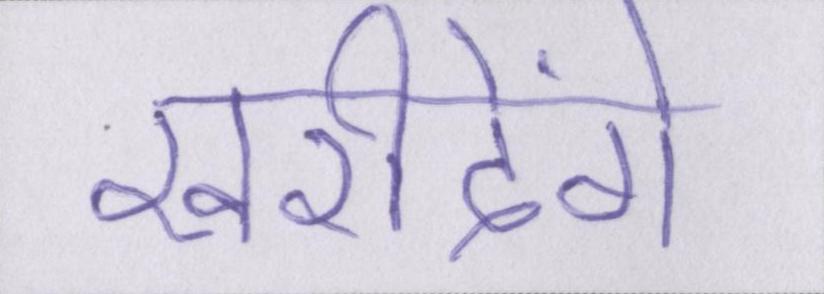 खरीदेंगे